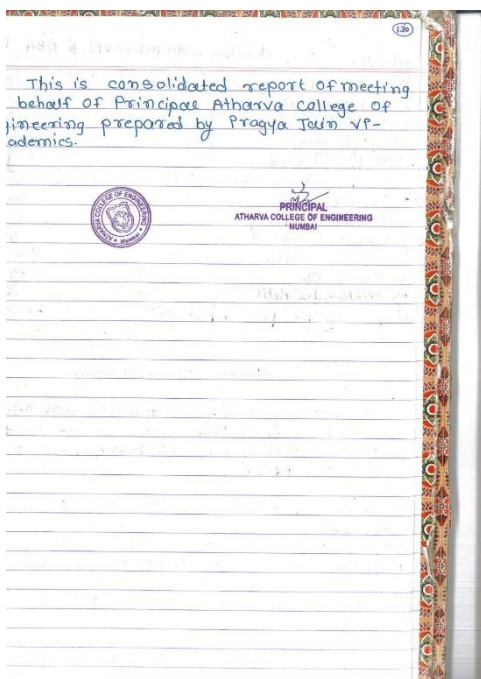 130
This is consolidated report of meeting
behalf of Principal Atharva College of
gineering prepared by Pragya Jain VP-
ademics.
ATHARVA COLLEGE OF ENGINEERING
Mumbai
PRINCIPAL
ATHARVA COLLEGE OF ENGINEERING
MUMBAI